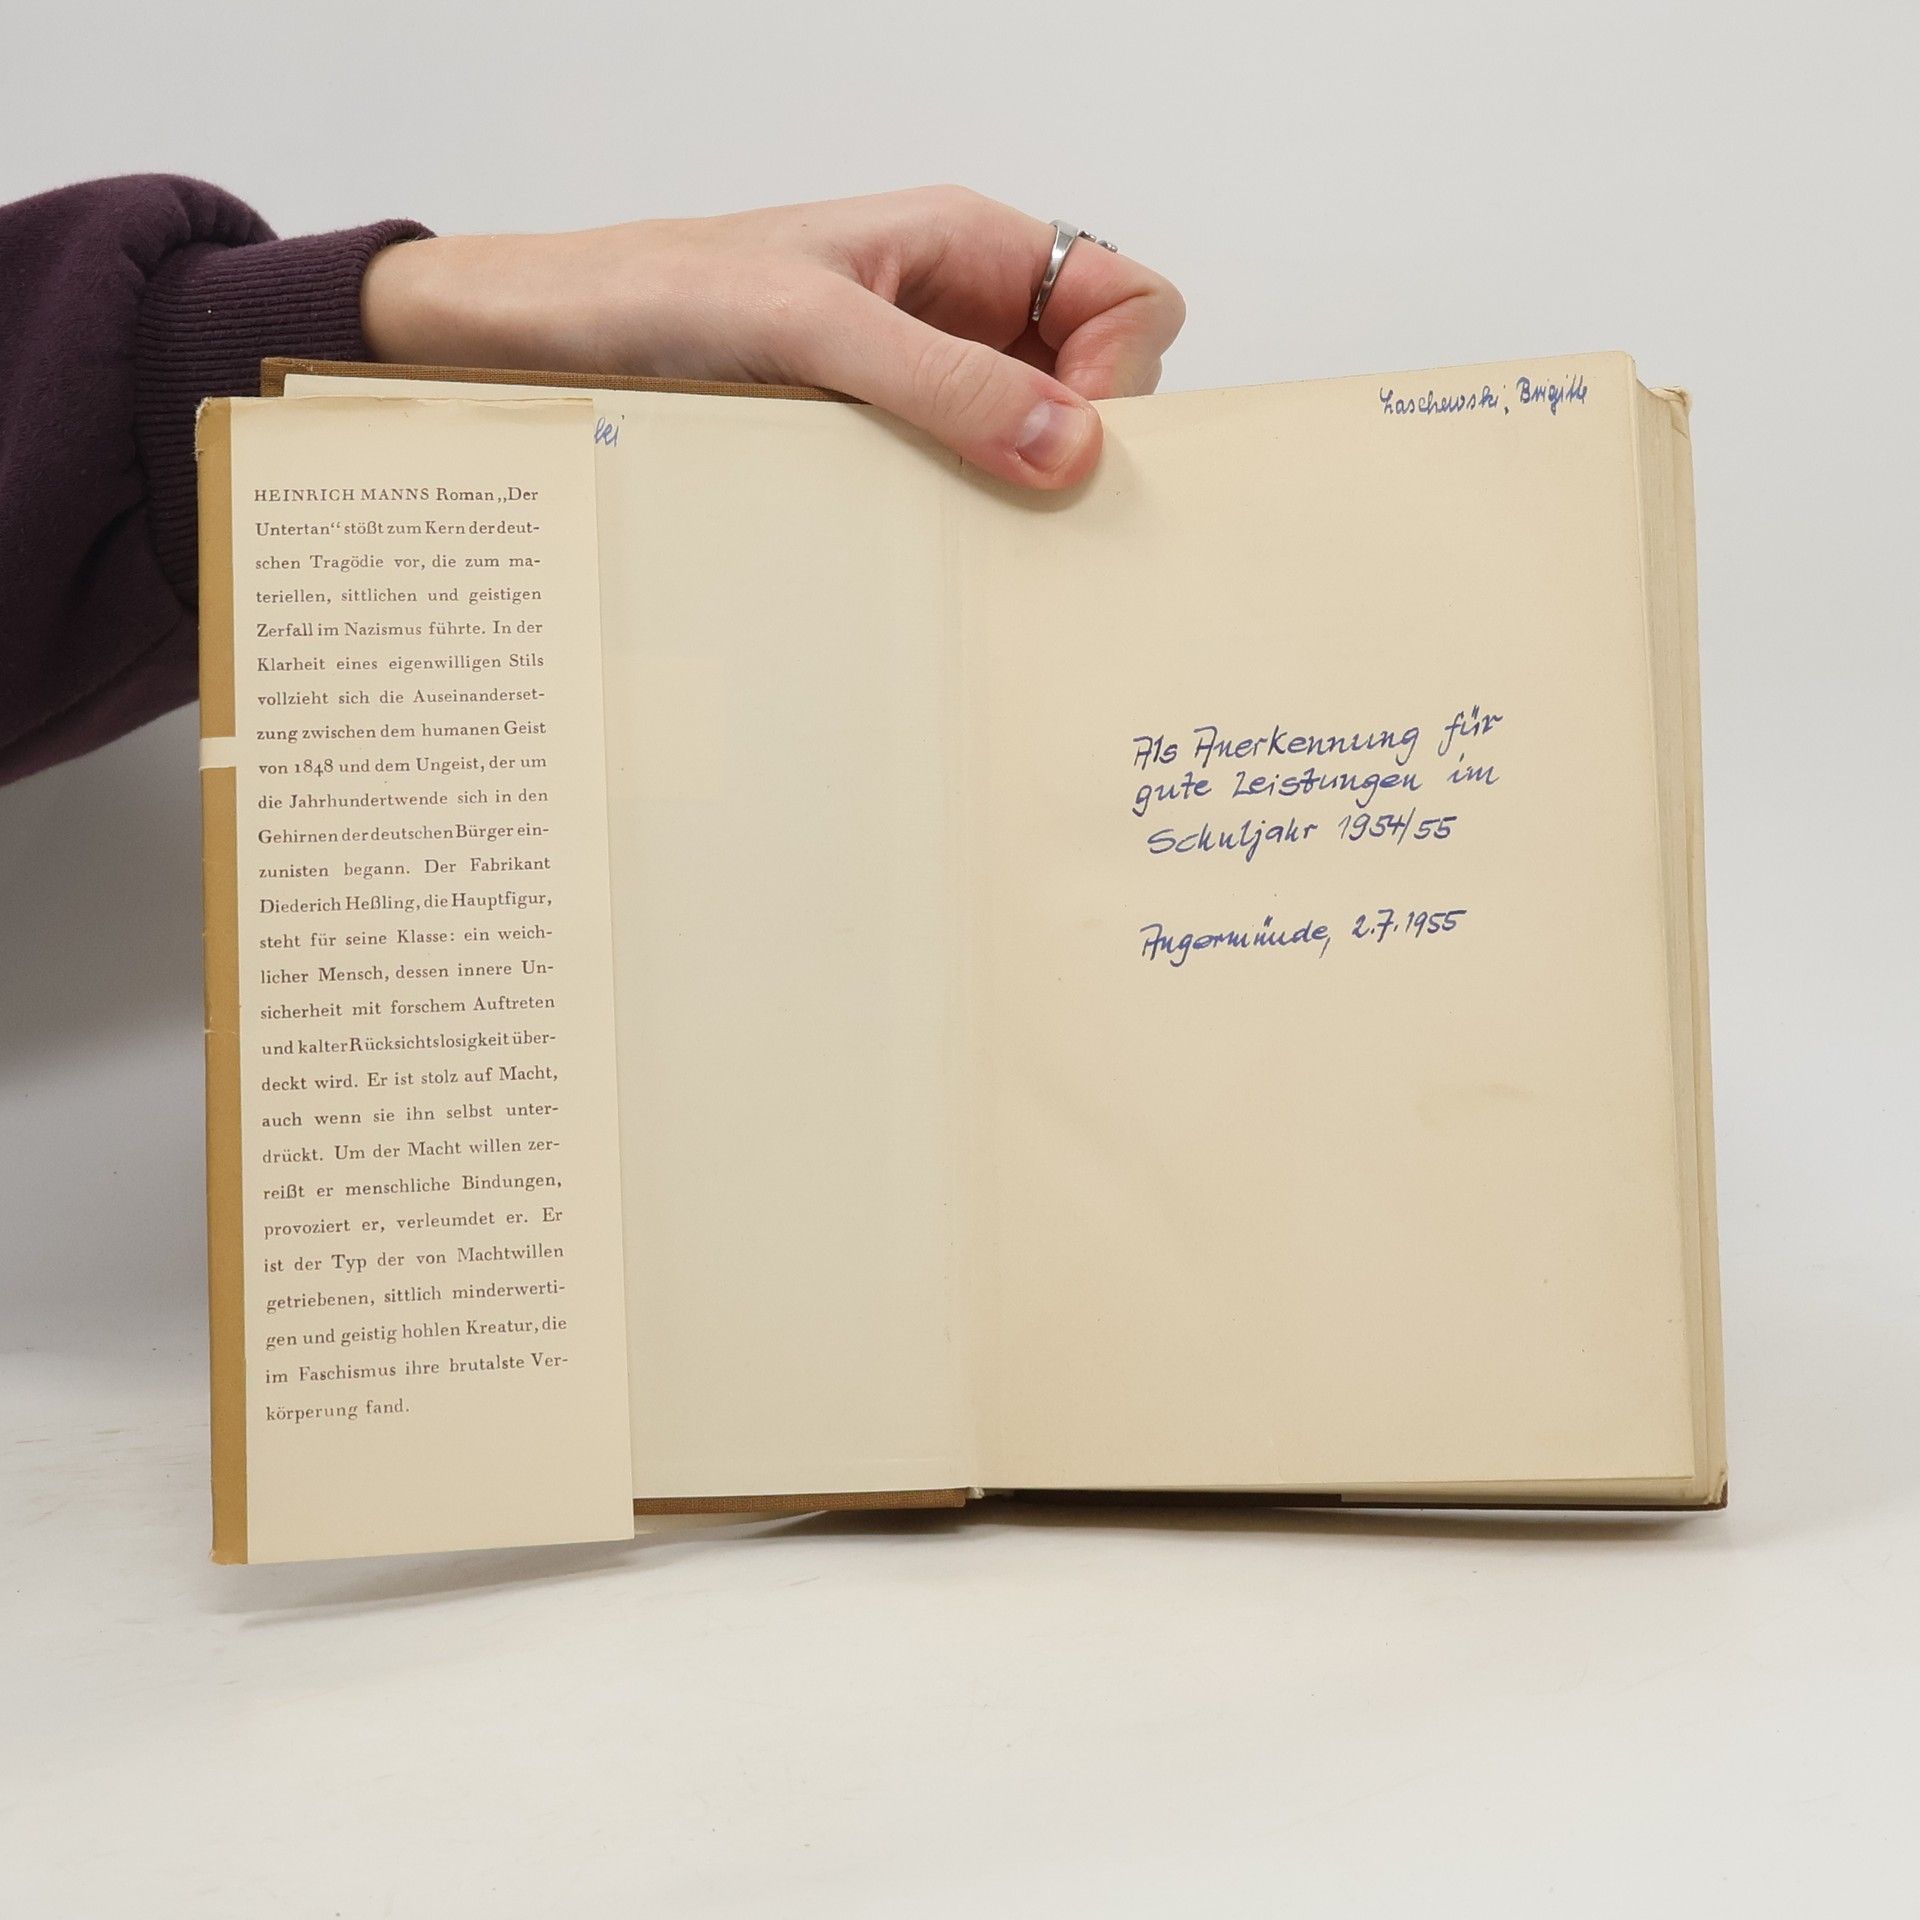 HEINRICH MANNS Roman „Der
Untertan“ stößt zum Kern der deut-
schen Tragödie vor, die zum ma-
teriellen, sittlichen und geistigen
Zerfall im Nazismus führte. In der
Klarheit eines eigenwilligen Stils
vollzieht sich die Auseinanderset-
zung zwischen dem humanen Geist
von 1848 und dem Ungeist, der um
die Jahrhundertwende sich in den
Gehirnen der deutschen Bürger ein-
zunisten begann. Der Fabrikant
Diederich Heßling, die Hauptfigur,
steht für seine Klasse: ein weich-
licher Mensch, dessen innere Un-
sicherheit mit forschem Auftreten
und kalter Rücksichtslosigkeit über-
deckt wird. Er ist stolz auf Macht,
auch wenn sie ihn selbst unter-
drückt. Um der Macht willen zer-
reißt er menschliche Bindungen,
provoziert er, verleumdet er. Er
ist der Typ der von Machtwillen
getriebenen, sittlich minderwerti-
gen und geistig hohlen Kreatur, die
im Faschismus ihre brutalste Ver-
körperung fand.
ki
Laschewski, Brigitte
Als Anerkennung für
gute Leistungen im
Schuljahr 1954/55
Angermünde, 2.7.1955